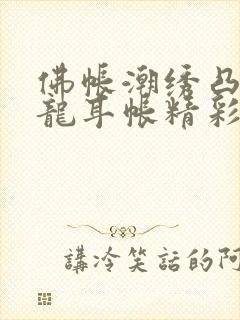 佛帳潮绣凸
龍耳帳精彩
講冷笑話的阿